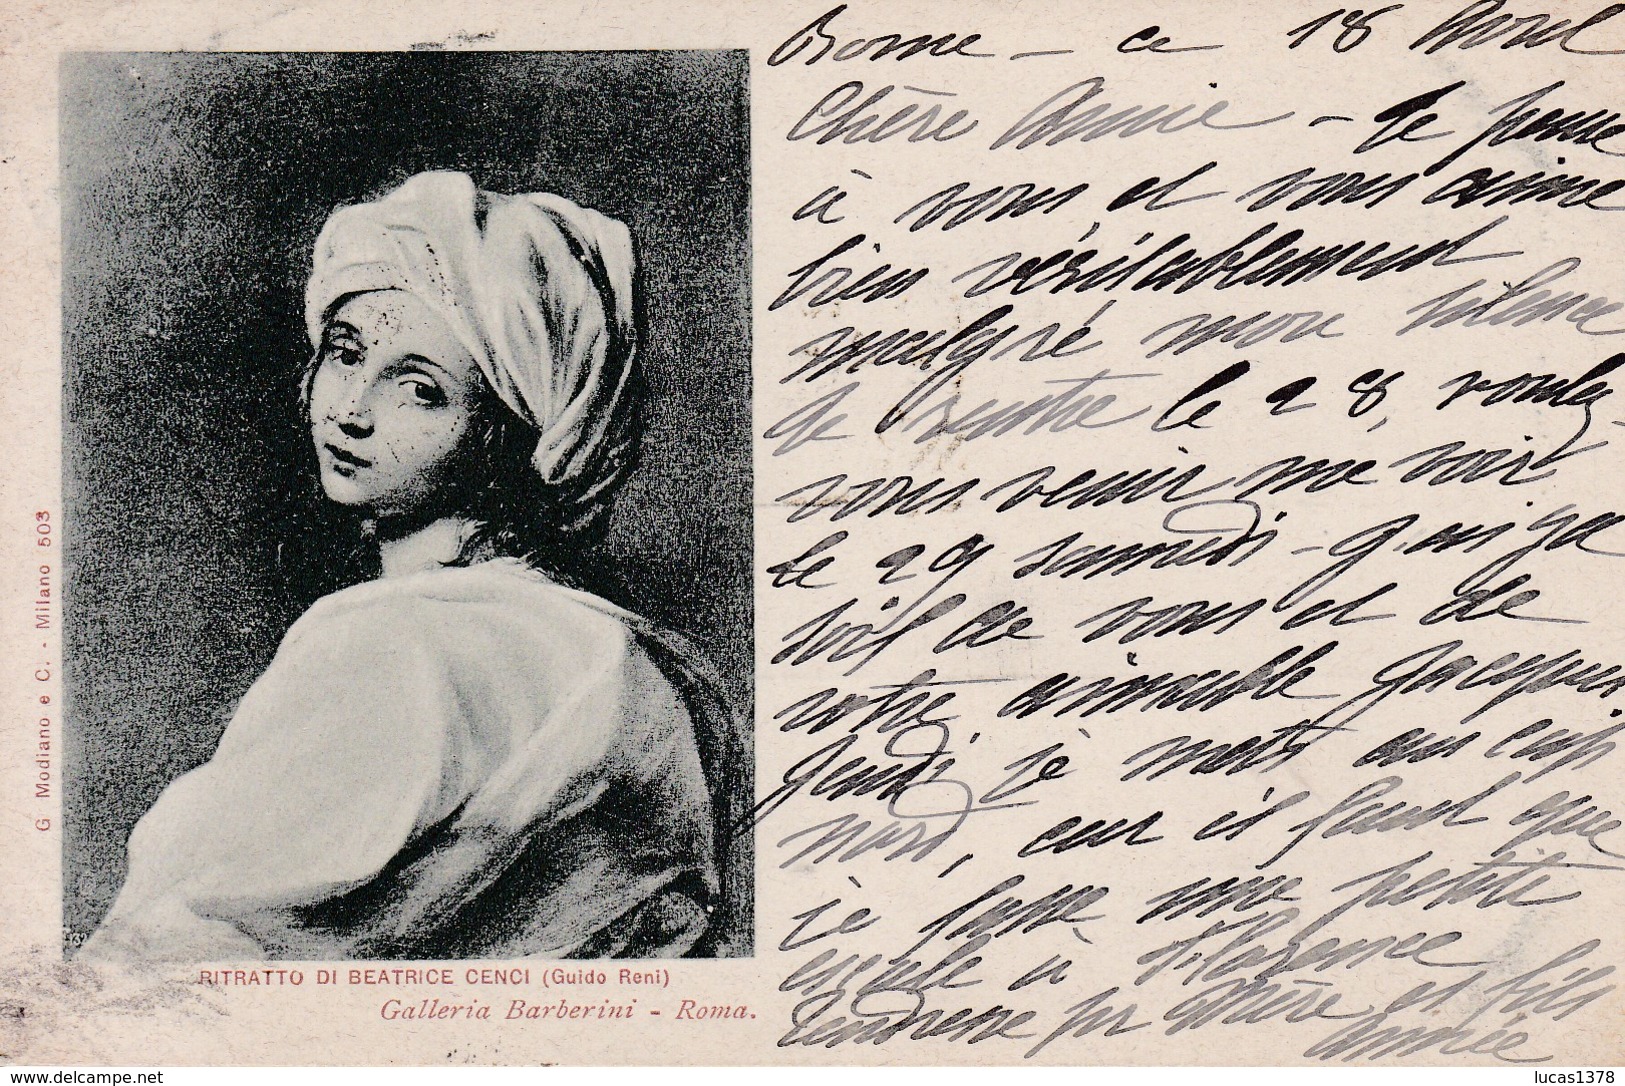 Rome - ce 18 Avril
Chère Annie - Je pense
à vous et vous aime
bien véritablement
malgré mon silence
Je rentre le 28, voulez-
vous venir me voir
le 29 samedi - j'ai
soif de vous et de
votre aimable Jacques.
Jeudi je mets au cap
nord, car il faut que
je fasse une petite
escale à Florence
Tendresse pr Mère et fils
Année
RITRATTO DI BEATRICE CENCI (Guido Reni)
Galleria Barberini - Roma.
G Modiano e C. - Milano 503
www.delcampe.net
lucas1378